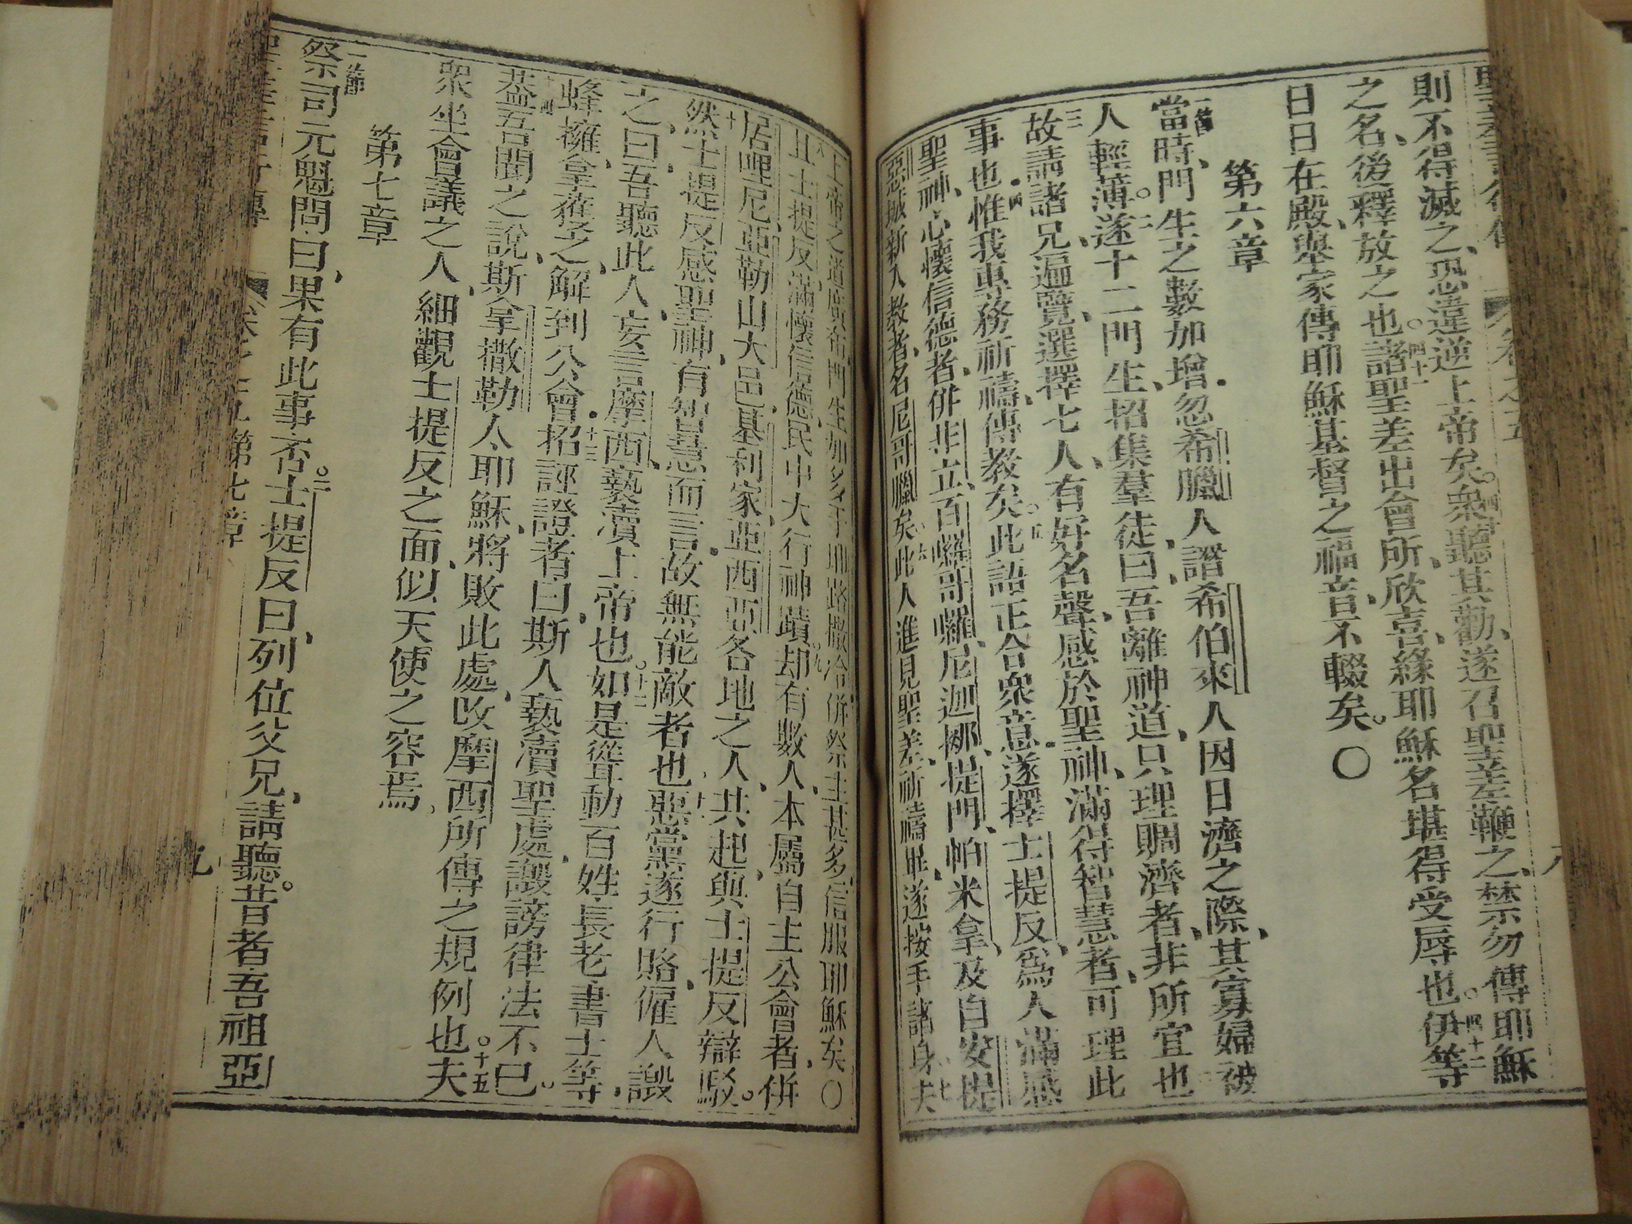 則不得滅之、恐違逆上帝矣。四十衆聽其勸、遂召聖差鞭之、禁勿傳耶穌
之名、後釋放之也。四十一諸聖差出會所、欣喜、緣耶穌名堪得受辱也。四十二伊等
日日在殿、舉家傳耶穌基督之福音、不輟矣。○
第六章
一節當時、門生之數加增、忽希臘人譖希伯來人、因日濟之際、其寡婦被
人輕薄。二遂十二門生、招集羣徒曰、吾離神道、只理賙濟者、非所宜也
三故請諸兄、遍覽、選擇七人、有好名聲、感於聖神、滿得智慧者、可理此
事也。四惟我專務祈禱、傳教矣。五此語正合衆意、遂擇士提反、爲人滿感
聖神、心懷信德者、併非立、百囉哥囉、尼迦挪、提門、帕米拿、及自安提
惡城新入教者、名尼哥臘矣。六此人進見聖差、祈禱畢、遂按手諸身、七夫
上帝之道廣布、門生加多于耶路撒冷、併祭士甚多、信服耶穌矣。○
八且士提反滿懷信德、民中大行神蹟。九却有數人、本屬自主公會者、併
居哩尼、亞勒山大邑、基利家、亞西亞各地之人、共起與士提反辯駁。
十然士提反感聖神、有智慧而言、故無能敵者也。十一惡黨遂行賂、僱人譭
之、曰、吾聽此人、妄言摩西、褻瀆上帝也。十二如是聳動百姓、長老、書士等、
蜂擁拿獲之、解到公會。十三招誣證者曰、斯人褻瀆聖處、譭謗律法不已。
十四葢吾聞之說、斯拿撒勒人耶穌、將敗此處、改摩西所傳之規例也。十五夫
衆坐會議之人、細觀士提反之面、似天使之容焉、
第七章
一節祭司元魁問曰、果有此事否。二士提反曰、列位父兄、請聽。昔者吾祖亞